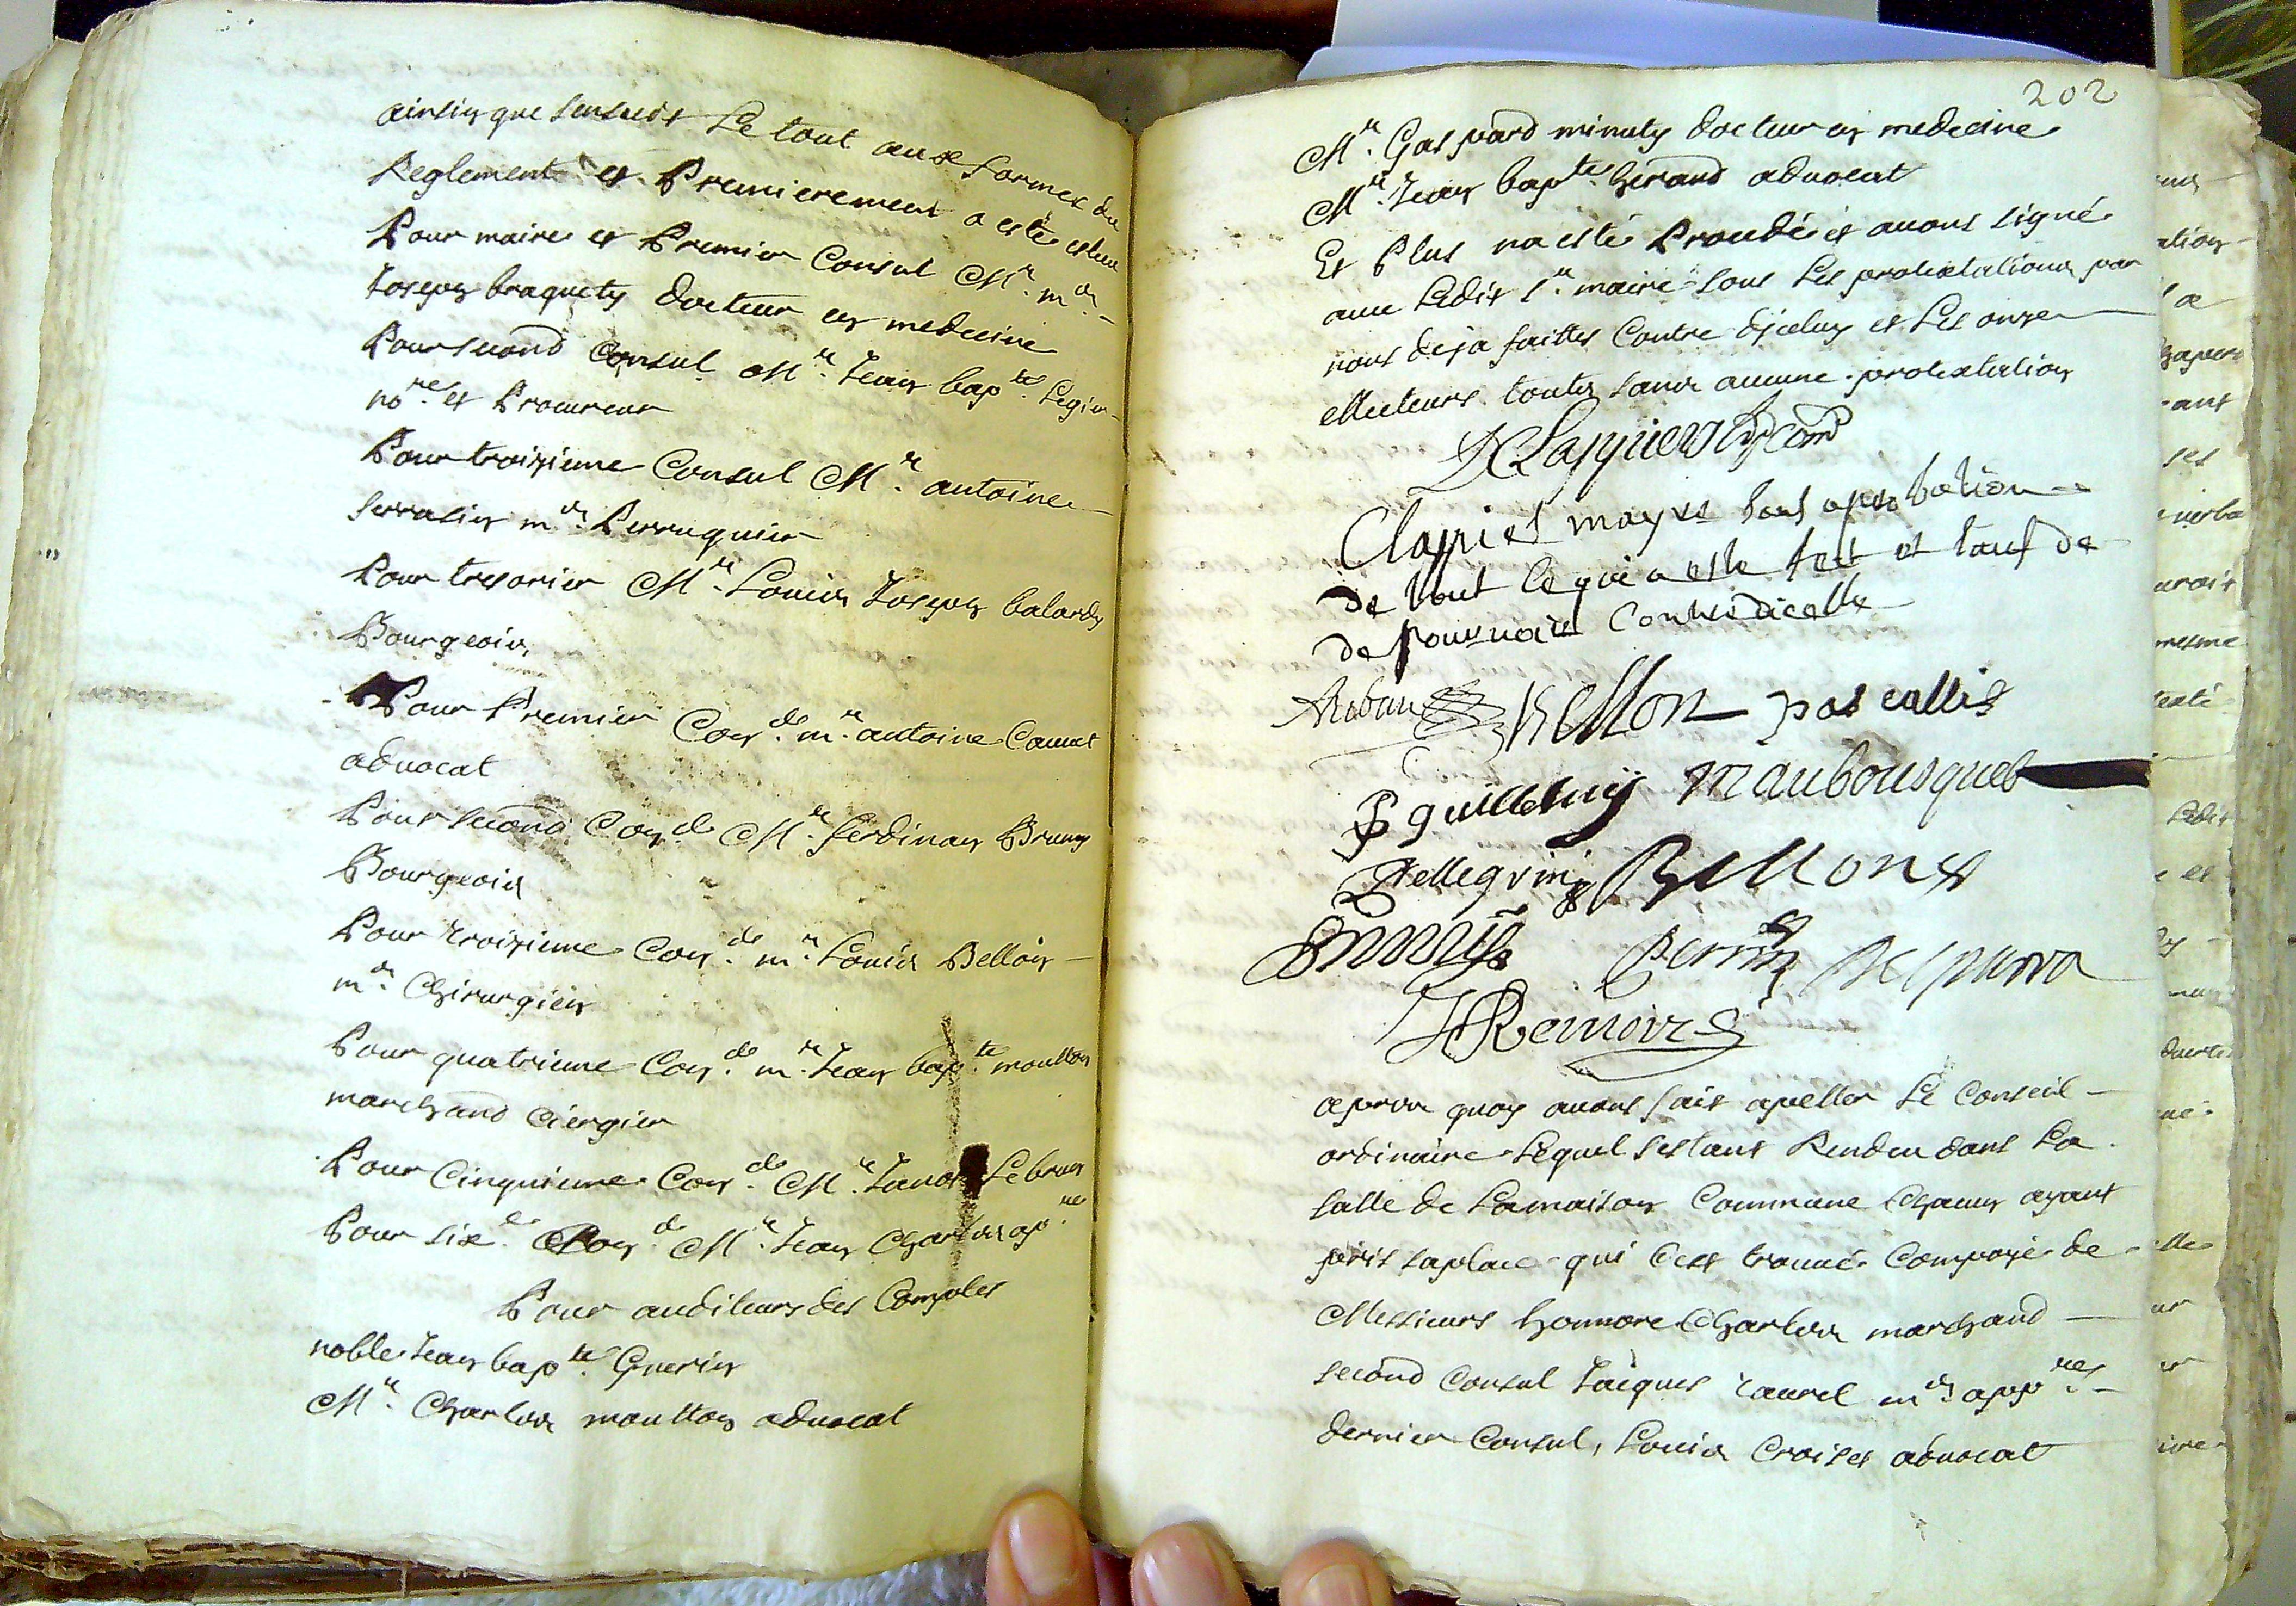 ainsin que sensuit Le tout aux formes du
Reglement et Premierement a esté esleu
Pour maire et Premier Consul Mr. me.
Joseph braquety docteur en medecine
Pour second Consul Mr. Jean bapte. Legier
nore. et Procureur
Pour troizieme Consul Mr. antoine
serrasin me. Perruquier
Pour tresorier Mr. Louis Joseph balardy
Bourgeois
Pour Premier Conr. de. mr. antoine
advocat
Pour second Conr. de Mr. ferdinan Bruny
Bourgeois
Pour troizieme Conr. de mr. Louis Bellon
me. Chirurgien
Pour quatrieme Conr. de mr. Jean bapte. moutton
marchand Ciergier
Pour Cinquieme Conr. de Mr. Lebrun
Pour sixe. Conr. de Mr. Jean Charles apre
Pour auditeurs des Comptes
noble Jean bapte. Guerin
Mr. Charles moutton advocat
202
Mr. Gaspard minuty docteur en medecine
Mr. Jean bapte. Giraud advocat
Et Plus na esté Proucedé et avons signé
avec Ledit sr. maire sous Les protestations par
nous deja faittes Contre diceluy et Les onze
ellecteurs toutes sans aucune protestation
Clappiers mayre sans aprobation
de tout ce qui a este fait et sauf de
de pourvoir Contre dicelle
Bellon pascallis
guillelmy Maubousquet
Pellegrin Bellone
apres quoy avons fait apeller Le Conseil
ordinaire Lequel sestant Rendeu dans La
salle de Lamaison Commune Chacun ayant
pris saplace qui cest trouvé Compozé de
Messieurs honnore Charles marchand
second Consul Jacques taurel me appre.
dernier Consul, Louis Croiset advocat